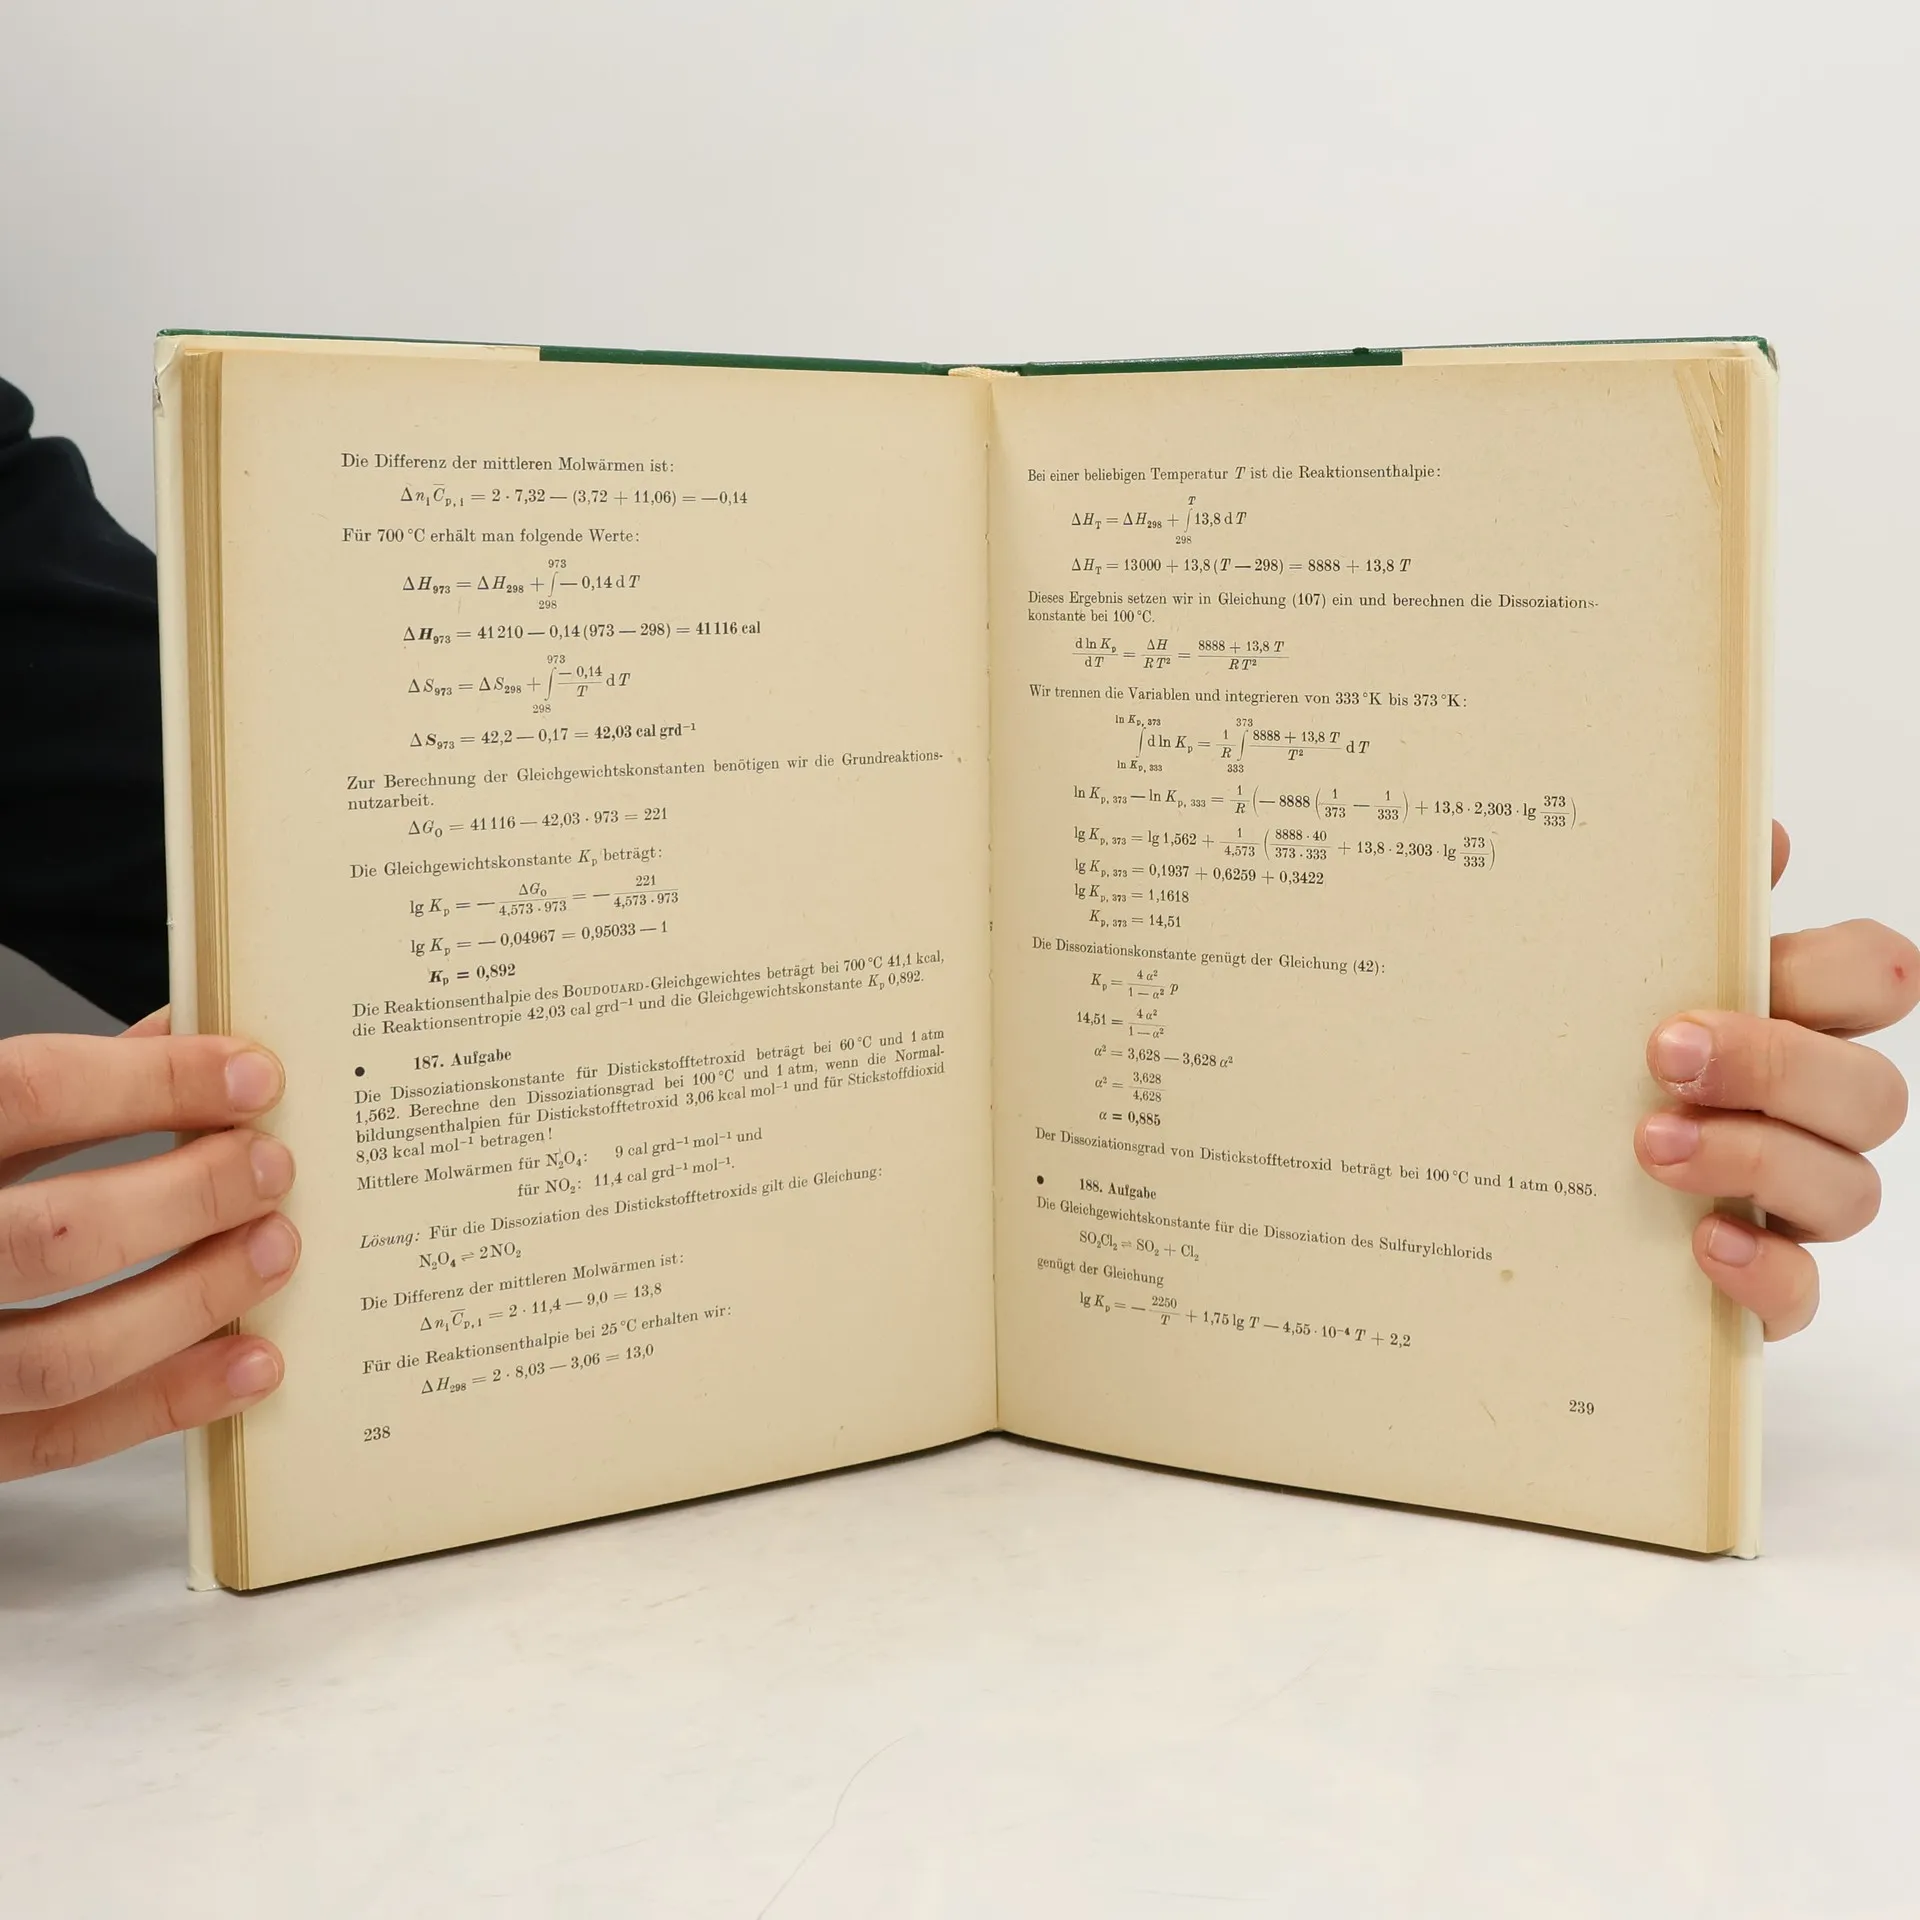 Die Differenz der mittleren Molwärmen ist:
Δ nᵢ C̅ₚ,ᵢ = 2 · 7,32 — (3,72 + 11,06) = —0,14
Für 700 °C erhält man folgende Werte:
Δ H₉₇₃ = Δ H₂₉₈ + ∫₂₉₈⁹⁷³ — 0,14 d T
Δ H₉₇₃ = 41 210 — 0,14 (973 — 298) = 41 116 cal
Δ S₉₇₃ = Δ S₂₉₈ + ∫₂₉₈⁹⁷³ (— 0,14 / T) d T
Δ S₉₇₃ = 42,2 — 0,17 = 42,03 cal grd⁻¹
Zur Berechnung der Gleichgewichtskonstanten benötigen wir die Grundreaktions-
nutzarbeit.
Δ G₀ = 41 116 — 42,03 · 973 = 221
Die Gleichgewichtskonstante Kₚ beträgt:
lg Kₚ = — ΔG₀ / (4,573 · 973) = — 221 / (4,573 · 973)
lg Kₚ = — 0,04967 = 0,95033 — 1
Kₚ = 0,892
Die Reaktionsenthalpie des BOUDOUARD-Gleichgewichtes beträgt bei 700 °C 41,1 kcal,
die Reaktionsentropie 42,03 cal grd⁻¹ und die Gleichgewichtskonstante Kₚ 0,892.
● 187. Aufgabe
Die Dissoziationskonstante für Distickstofftetroxid beträgt bei 60 °C und 1 atm
1,562. Berechne den Dissoziationsgrad bei 100 °C und 1 atm, wenn die Normal-
bildungsenthalpien für Distickstofftetroxid 3,06 kcal mol⁻¹ und für Stickstoffdioxid
8,03 kcal mol⁻¹ betragen!
Mittlere Molwärmen für N₂O₄: 9 cal grd⁻¹ mol⁻¹ und
für NO₂: 11,4 cal grd⁻¹ mol⁻¹.
Lösung: Für die Dissoziation des Distickstofftetroxids gilt die Gleichung:
N₂O₄ ⇌ 2 NO₂
Die Differenz der mittleren Molwärmen ist:
Δ nᵢ C̅ₚ,ᵢ = 2 · 11,4 — 9,0 = 13,8
Für die Reaktionsenthalpie bei 25 °C erhalten wir:
Δ H₂₉₈ = 2 · 8,03 — 3,06 = 13,0
238
Bei einer beliebigen Temperatur T ist die Reaktionsenthalpie:
Δ H_T = Δ H₂₉₈ + ∫₂₉₈ᵀ 13,8 d T
Δ H_T = 13000 + 13,8 (T — 298) = 8888 + 13,8 T
Dieses Ergebnis setzen wir in Gleichung (107) ein und berechnen die Dissoziations-
konstante bei 100 °C.
d ln Kₚ / d T = ΔH / R T² = (8888 + 13,8 T) / R T²
Wir trennen die Variablen und integrieren von 333 °K bis 373 °K:
∫_{ln Kₚ, ₃₃₃}^{ln Kₚ, ₃₇₃} d ln Kₚ = 1/R ∫₃₃₃³⁷³ (8888 + 13,8 T) / T² d T
ln Kₚ, ₃₇₃ — ln Kₚ, ₃₃₃ = 1/R (— 8888 (1/373 — 1/333) + 13,8 · 2,303 · lg 373/333)
lg Kₚ, ₃₇₃ = lg 1,562 + 1/4,573 (8888 · 40 / 373 · 333 + 13,8 · 2,303 · lg 373/333)
lg Kₚ, ₃₇₃ = 0,1937 + 0,6259 + 0,3422
lg Kₚ, ₃₇₃ = 1,1618
Kₚ, ₃₇₃ = 14,51
Die Dissoziationskonstante genügt der Gleichung (42):
Kₚ = 4 α² / (1 — α²) p
14,51 = 4 α² / (1 — α²)
α² = 3,628 — 3,628 α²
α² = 3,628 / 4,628
α = 0,885
Der Dissoziationsgrad von Distickstofftetroxid beträgt bei 100 °C und 1 atm 0,885.
● 188. Aufgabe
Die Gleichgewichtskonstante für die Dissoziation des Sulfurylchlorids
SO₂Cl₂ ⇌ SO₂ + Cl₂
genügt der Gleichung
lg Kₚ = — 2250 / T + 1,75 lg T — 4,55 · 10⁻⁴ T + 2,2
239